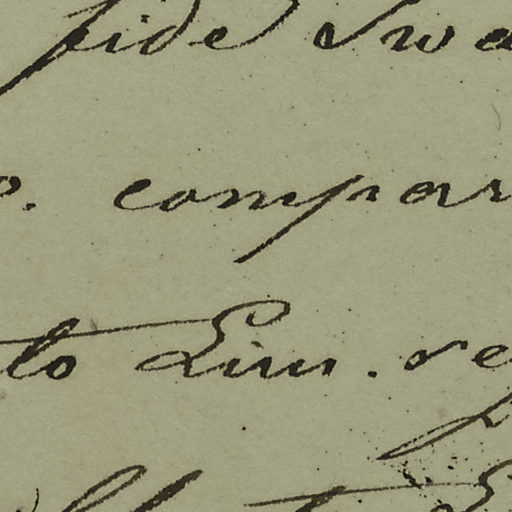 fide Swa
o. compar
to Linn. re